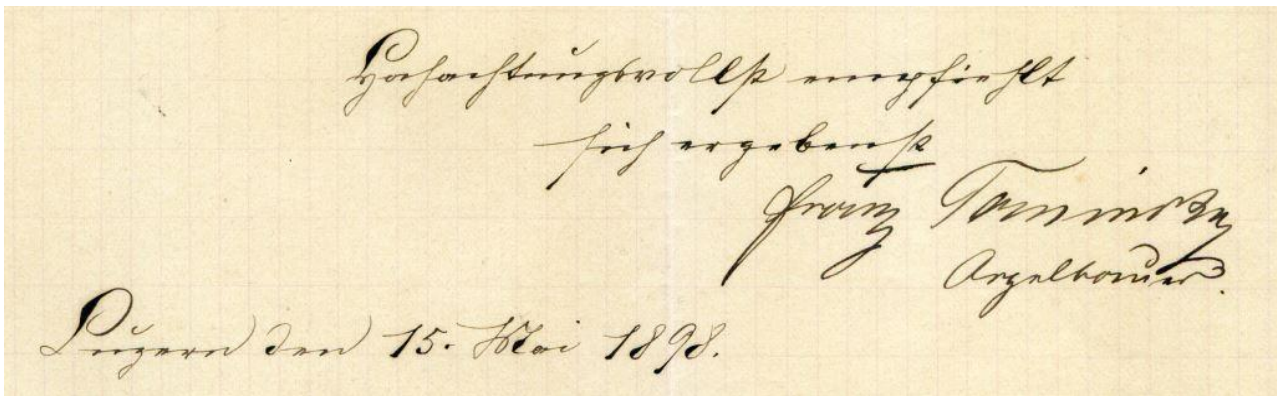 Hochachtungsvollst empfiehlt
sich ergebenst
Franz Taminsky
Orgelbauer.
Luzern den 15. Mai 1898.